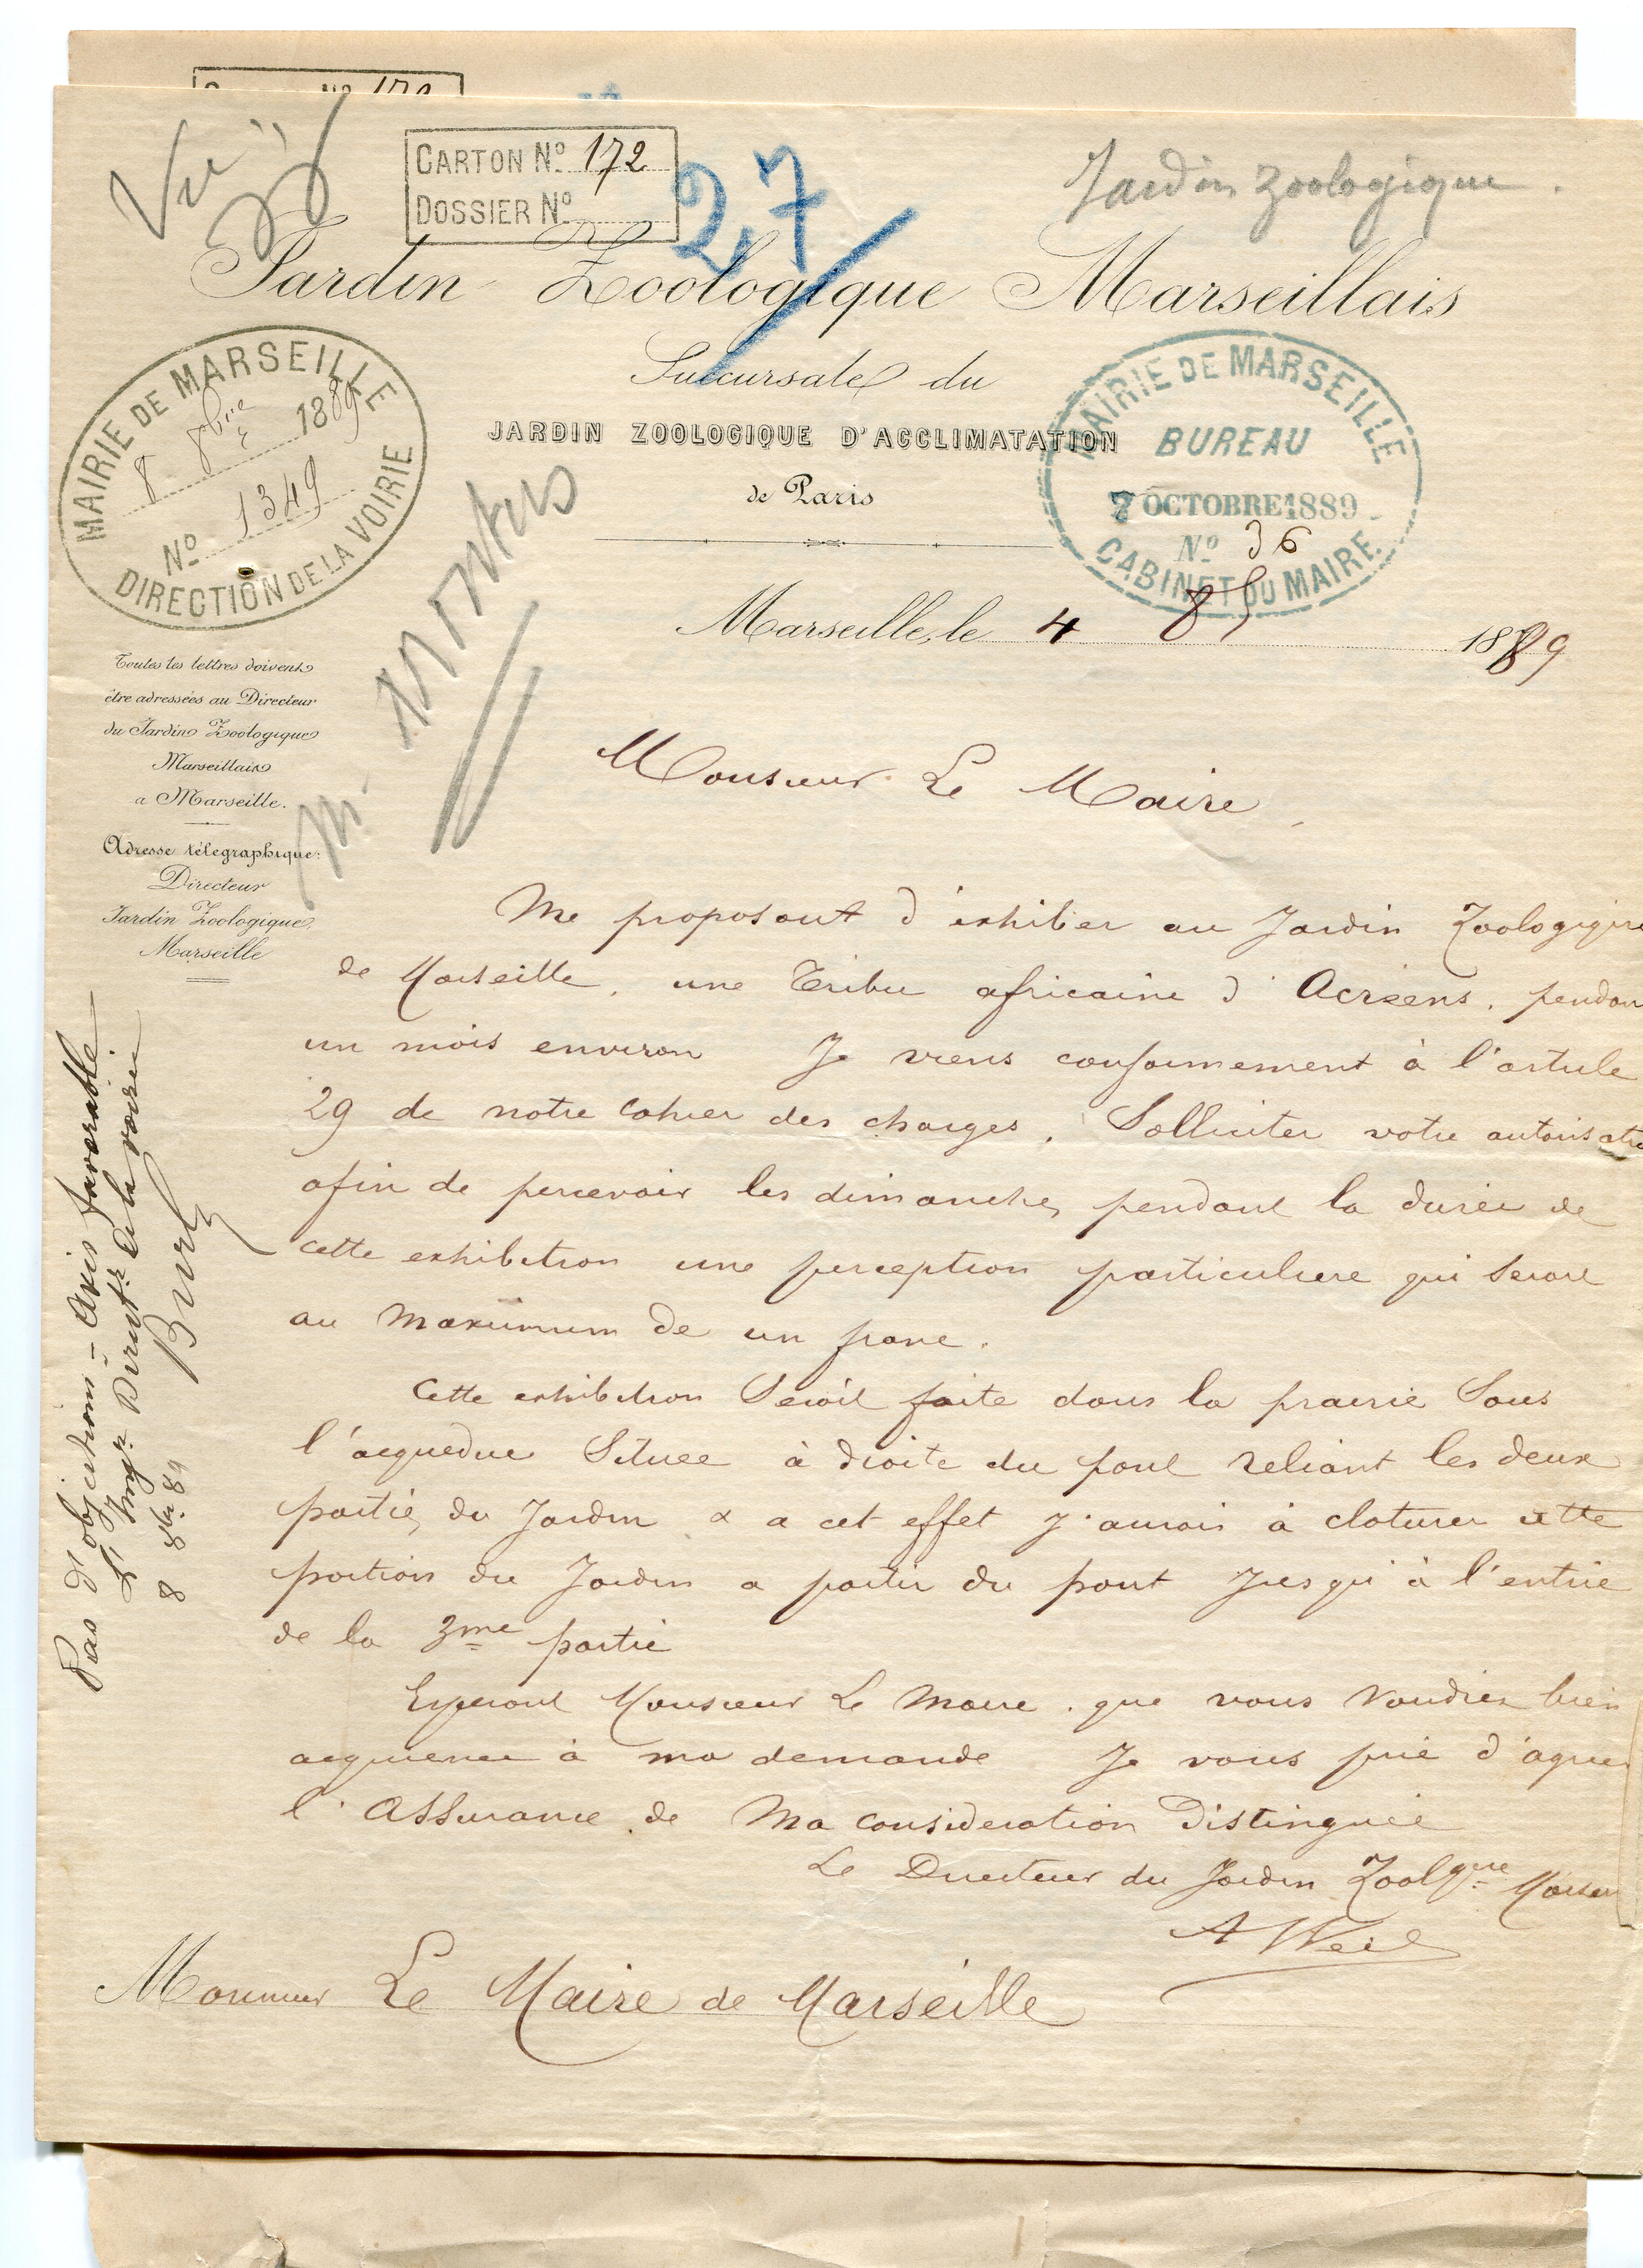 Vu
CARTON No. 172
DOSSIER No.
27
Jardin Zoologique.
Jardin Zoologique Marseillais
Succursale du
JARDIN ZOOLOGIQUE D'ACCLIMATATION
de Paris
MAIRIE DE MARSEILLE
8 8bre 1889
No 1349
DIRECTION DE LA VOIRIE
MAIRIE DE MARSEILLE
BUREAU
7 OCTOBRE 1889
No 36
CABINET DU MAIRE
Marseille, le 4 1889
Toutes les lettres doivent
être adressées au Directeur
du Jardin Zoologique
Marseillais
a Marseille.
Adresse télégraphique:
Directeur
Jardin Zoologique,
Marseille
Monsieur Le Maire,
Me proposant d'exhiber au Jardin Zoologique
de Marseille, une Tribu africaine d' pendan
un mois environ Je viens conformement à l'article
29 de notre Cahier des charges, Solliciter votre autorisatio
afin de percevoir les dimanches pendant la durée de
cette exhibition une perception particuliere qui serait
au maximum de un franc.
Cette exhibition Serait faite dans la prairie Sous
l'acqueduc Située à droite du pont reliant les deux
parties du Jardin & a cet effet j'aurais à cloturer cette
portion du Jardin a partir du pont jusqu'à l'entrée
de la 3me partie
Esperant Monsieur Le Maire que vous voudrez bien
à ma demande Je vous prie d'agreer
l'Assurance de Ma consideration Distinguée
Le Directeur du Jardin Zoolgque Marsei
A Weil
Monsieur Le Maire de Marseille
Pas d'objections - Avis favorable
L'Ingr Directr de la voirie
8 8bre 89